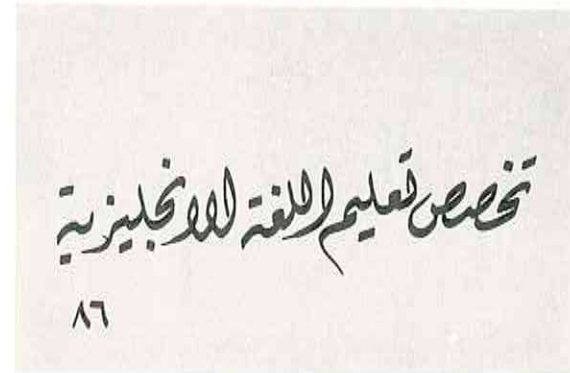 تخصص تعليم اللغة الانجليزية
٨٦